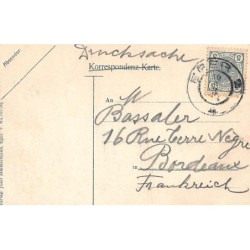 Drucksache
Korrespondenz-Karte.
EGER 2
An
M
Bassaler
16 Rue Terre Nègre
Bordeaux
Frankreich